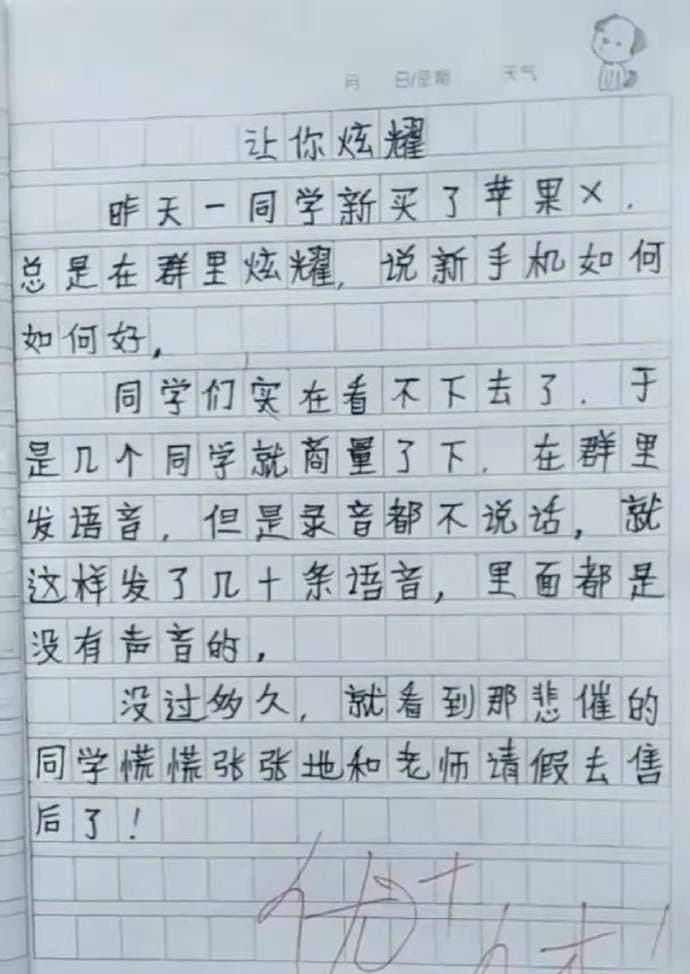 月 日/星期 天气
让你炫耀
昨天一同学新买了苹果X.
总是在群里炫耀,说新手机如何
如何好,
同学们实在看不下去了.于
是几个同学就商量了下.在群里
发语音,但是录音都不说话,就
这样发了几十条语音,里面都是
没有声音的,
没过多久,就看到那悲催的
同学慌慌张张地和老师请假去售
后了!
优+